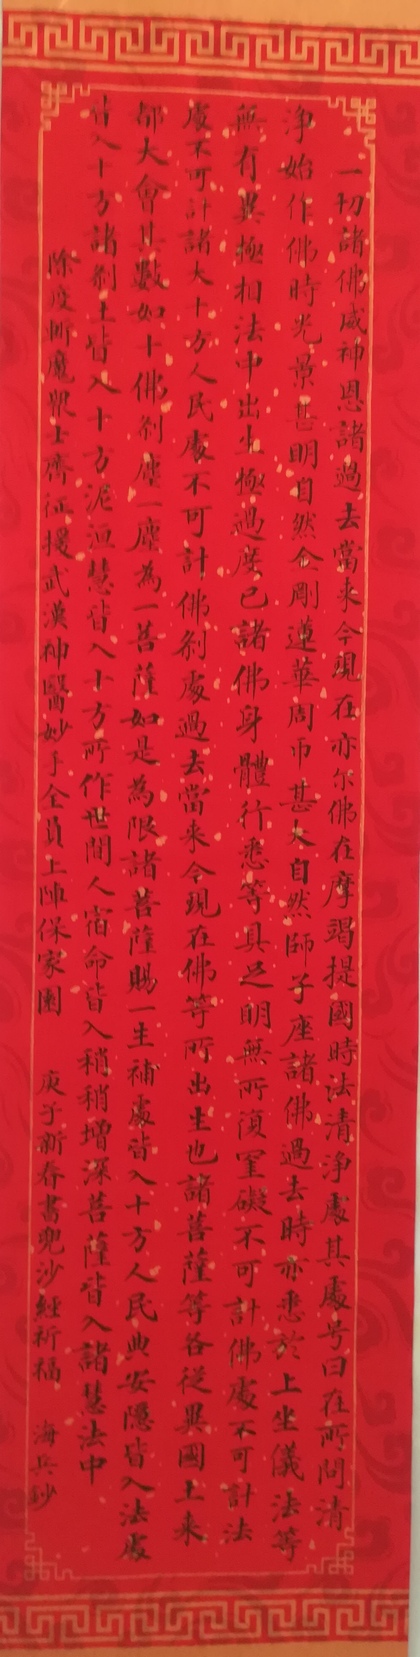 一切諸佛威神恩諸過去當來今現在亦尔佛在摩竭提國時法清淨處其處号曰在所問清
淨始作佛時光景甚明自然金剛蓮華周帀甚大自然師子座諸佛過去時亦悉於上坐儀法等
無有異極相法中出生極過度已諸佛身體行悉等具足明無所復罣礙不可計佛處不可計法
處不可計諸大十方人民處不可計佛剎處過去當來今現在佛等所出生也諸菩薩等各從異國土來
都大會其數如十佛剎塵一塵為一菩薩如是為限諸菩薩賜一生補處皆入十方人民典安隱皆入法處
皆入十方諸剎土皆入十方泥洹慧皆入十方所作世間人宿命皆入稍稍增深菩薩皆入諸慧法中
除疫斬魔眾士齊征援武漢神醫妙手全員上陣保家園 庚子新春書兜沙經祈福 海兵鈔